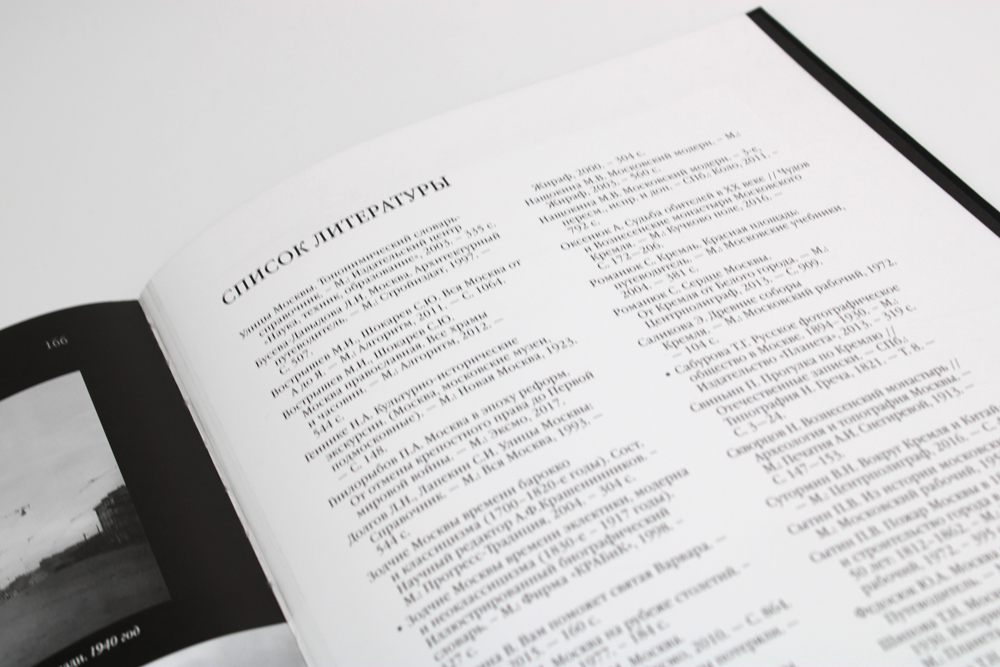 166
1940 год
СПИСОК ЛИТЕРАТУРЫ
Улицы Москвы. Топонимический словарь-
справочник. – М.: Издательский центр
«Наука, техника, образование», 2003. – 335 с.
Бусева-Давыдова И.Л. Москва. Архитектурный
путеводитель. – М.: Стройиздат, 1997. –
С. 507.
Вострышев М.И., Шокарев С.Ю. Вся Москва от
А до Я. – М.: Алгоритм, 2011. – С. 1064.
Вострышев М.И., Шокарев С.Ю.
Москва православная. Все храмы
и часовни. – М.: Алгоритм, 2012. –
544 с.
Гейнике Н.А. Культурно-исторические
экскурсии. (Москва, московские музеи,
подмосковные) – М.: Новая Москва, 1923.
С. 148.
От отмены крепостного права до Первой
мировой войны. – М.: Эксмо, 2017.
Справочник. – М.: Вся Москва, 1993.
544 с.
Зодчие Москвы времени барокко
и классицизма (1700–1820-е годы). Сост.
Научный редактор А.Ф.Крашенинников. –
М.: Прогресс-Традиция, 2004. – 304 с.
• Зодчие Москвы времени эклектики, модерна
и неоклассицизма (1830-е – 1917 годы).
Иллюстрированный биографический
словарь. – М.: Фирма «КРАБиК», 1998. –
Вам поможет святая Варвара. –
160 с.
Москва на рубеже столетий. –
184 с.
2010. – С. 864.
Жираф, 2000. – 304 с.
Нащокина М.В. Московский модерн. – М.:
Жираф, 2003. – 560 с.
Нащокина М.В. Московский модерн. – 3-е,
пересм., испр. и доп. – СПб.: Коло, 2011. –
792 с.
Оксенюк А. Судьба обителей в XX веке // Чудов
и Вознесенские монастыри Московского
Кремля. – М.: Кучково поле, 2016. –
С. 172–206.
Романюк С. Кремль. Красная площадь:
путеводитель. – М.: Московские учебники,
2004. – 381 с.
Романюк С. Сердце Москвы.
От Кремля от Белого города. – М.:
Центрполиграф, 2013. – С. 909
Салтыкова Э. Древние соборы
Кремля. – М.: Московский рабочий, 1972.
– 104 с.
• Сабурова Т.Г. Русское фотографическое
общество в Москве. 1894–1930. – М.:
Издательство «Планета», 2013. – 319 с.
Свиньин П. Прогулка по Кремлю //
Отечественные записки. – СПб.:
Типография Н. Греча, 1821. – Т.8. –
С. 3–24.
Скворцов Н. Вознесенский монастырь //
Археология и топография Москвы. –
М.: Печатня А.И. Снегиревой, 1913. –
С. 147–153.
Сутормин В.Н. Вокруг Кремля и Китай
– М.: Центрполиграф, 2016. – С.
Сытин П.В. Из истории московских
М.: Московский рабочий,
Сытин П.В. Пожар Москвы в
и строительство города
50 лет. 1812–1862. – М.:
рабочий, 1972. – 395
Федосюк Ю.А. Москва
Путеводитель.